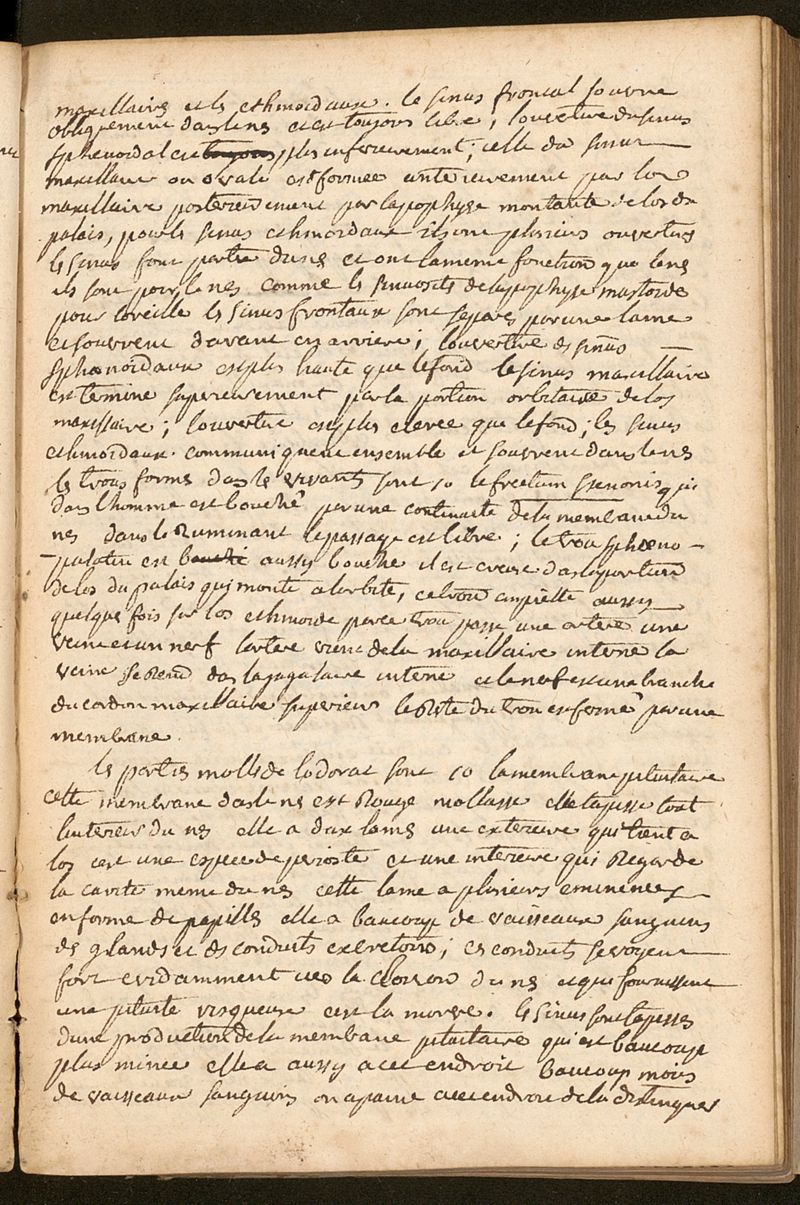 maxillaires et les ethmoidaux. le sinus frontal souvre
obliquement dans le nes et est toujours libre, louverture du sinus
sphenoidal est toujours plus inferieurement; celle du sinus
maxillaire ou ovale est formée anterieurement par los
maxillaire posterieurement par lapophyse montante de los du
palais, pour les sinus ethmoidaux ils ont plusieurs ouvertures
les sinus font partie du nes et ont la meme fonction que le nes
ils sont pour le nes comme les sinuosités de lapophyse mastoide
pour loreille les sinus frontaux sont separés par une lame
et souvrent davant en arriere; louverture des sinus
sphænoidaux est plus haute que le fond le sinus maxillaire
est terminé superieurement par la portion orbitaire de los
maxillaire; louverture est plus elevée que le fond; les sinus
ethmoidaux communiquent ensemble et souvrent dans le nes
les trous formés dans les vivants sont 1o le foetum stenonis qui
dans lhomme est bouché par une continuité de la membrane du
nes dans le Ruminant le passage est libre; le trou sphæno-
-palatin est bouché aussy bouché il est creusé dans la portion
de los du palais qui monte a lorbite, ce trou empiette aussy
quelque fois sur los ethmoide par ce trou passe une artere une
veine et un nerf lartere vient de la maxillaire interne la
veine se Rend dans la jugulaire interne et le nerf est une branche
du cordon maxillaire superieur le Reste du trou est fermé par une
membrane.
les parties molles de lodorat sont 1o la membrane pituitaire
cette membrane dans le nes est Rouge mollasse elle tapisse tout
linterieur du nes elle a deux lames une exterieure qui tient a
los cest une espece de perioste et une interieure qui Regarde
la cavité meme du nes cette lame a plusieurs eminences
en forme de papilles elle a beaucoup de vaisseaux sanguins
des glandes et des conduits excretoires; ces conduits se voyent
fort evidamment vers la cloison du nes et qui fournissent
une pituite visqueuse cest la morve. les sinus sont tapissés
dune production de la membrane pituitaire qui est beaucoup
plus mince elle a aussy a cet endroit beaucoup moins
de vaisseaux sanguins on a paine a cet endroit de la distinguer